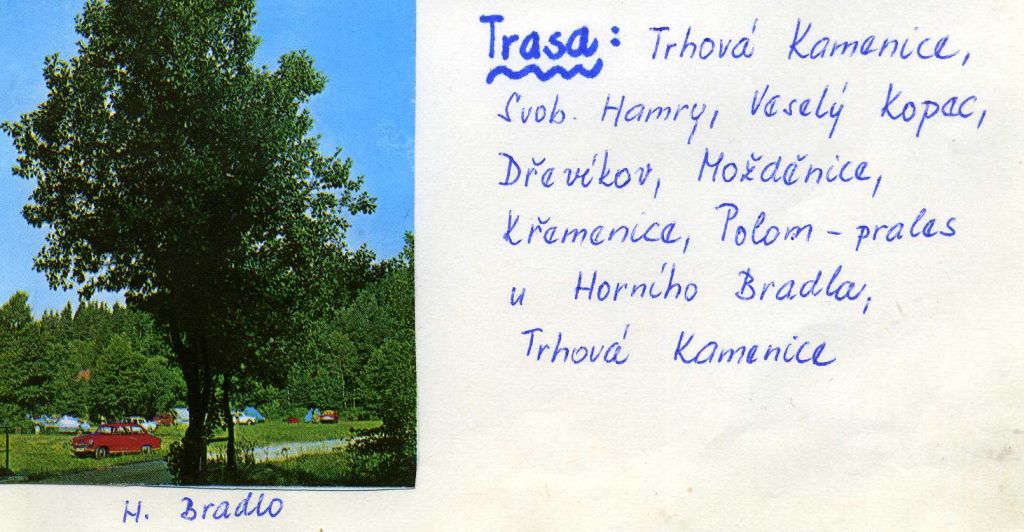 Trasa: Trhová Kamenice,
Svob. Hamry, Veselý Kopec,
Dřevíkov, Možděnice,
Křemenice, Polom - prales
u Horního Bradla,
Trhová Kamenice
H. Bradlo